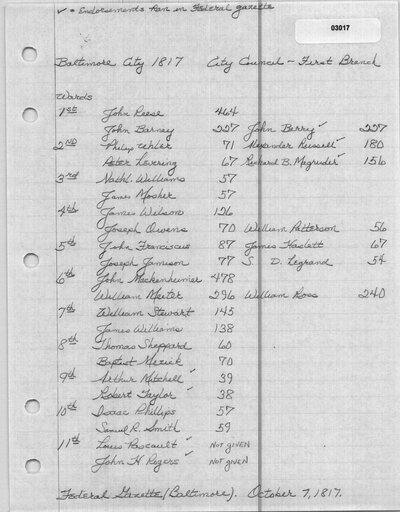 ✓ = Endorsements Ran in Federal Gazette
03017
Baltimore City 1817 City Council - First Branch
Wards
1st John Reese 464
John Barney 227 John Berry ✓ 227
2nd Philip Uhler 71 Alexander Russell ✓ 180
Peter Levering 67 Richard B. Magruder ✓ 156
3rd Nathl. Williams 57
James Mosher 57
4th James Wilson 126
Joseph Owens 70 William Patterson 56
5th John Franciscus 87 James Haslett 67
Joseph Jamison 77 S. D. Legrand 54
6th John Mackenheimer 478
William Meeter 296 William Ross 240
7th William Stewart 145
James Williams 138
8th Thomas Sheppard 60
Baptist Mezick 70
9th Arthur Mitchell ✓ 39
Robert Taylor ✓ 38
10th Isaac Phillips 57
Samuel R. Smith 59
11th Louis Pascault ✓ NOT GIVEN
John H. Rogers ✓ NOT GIVEN
Federal Gazette (Baltimore). October 7, 1817.